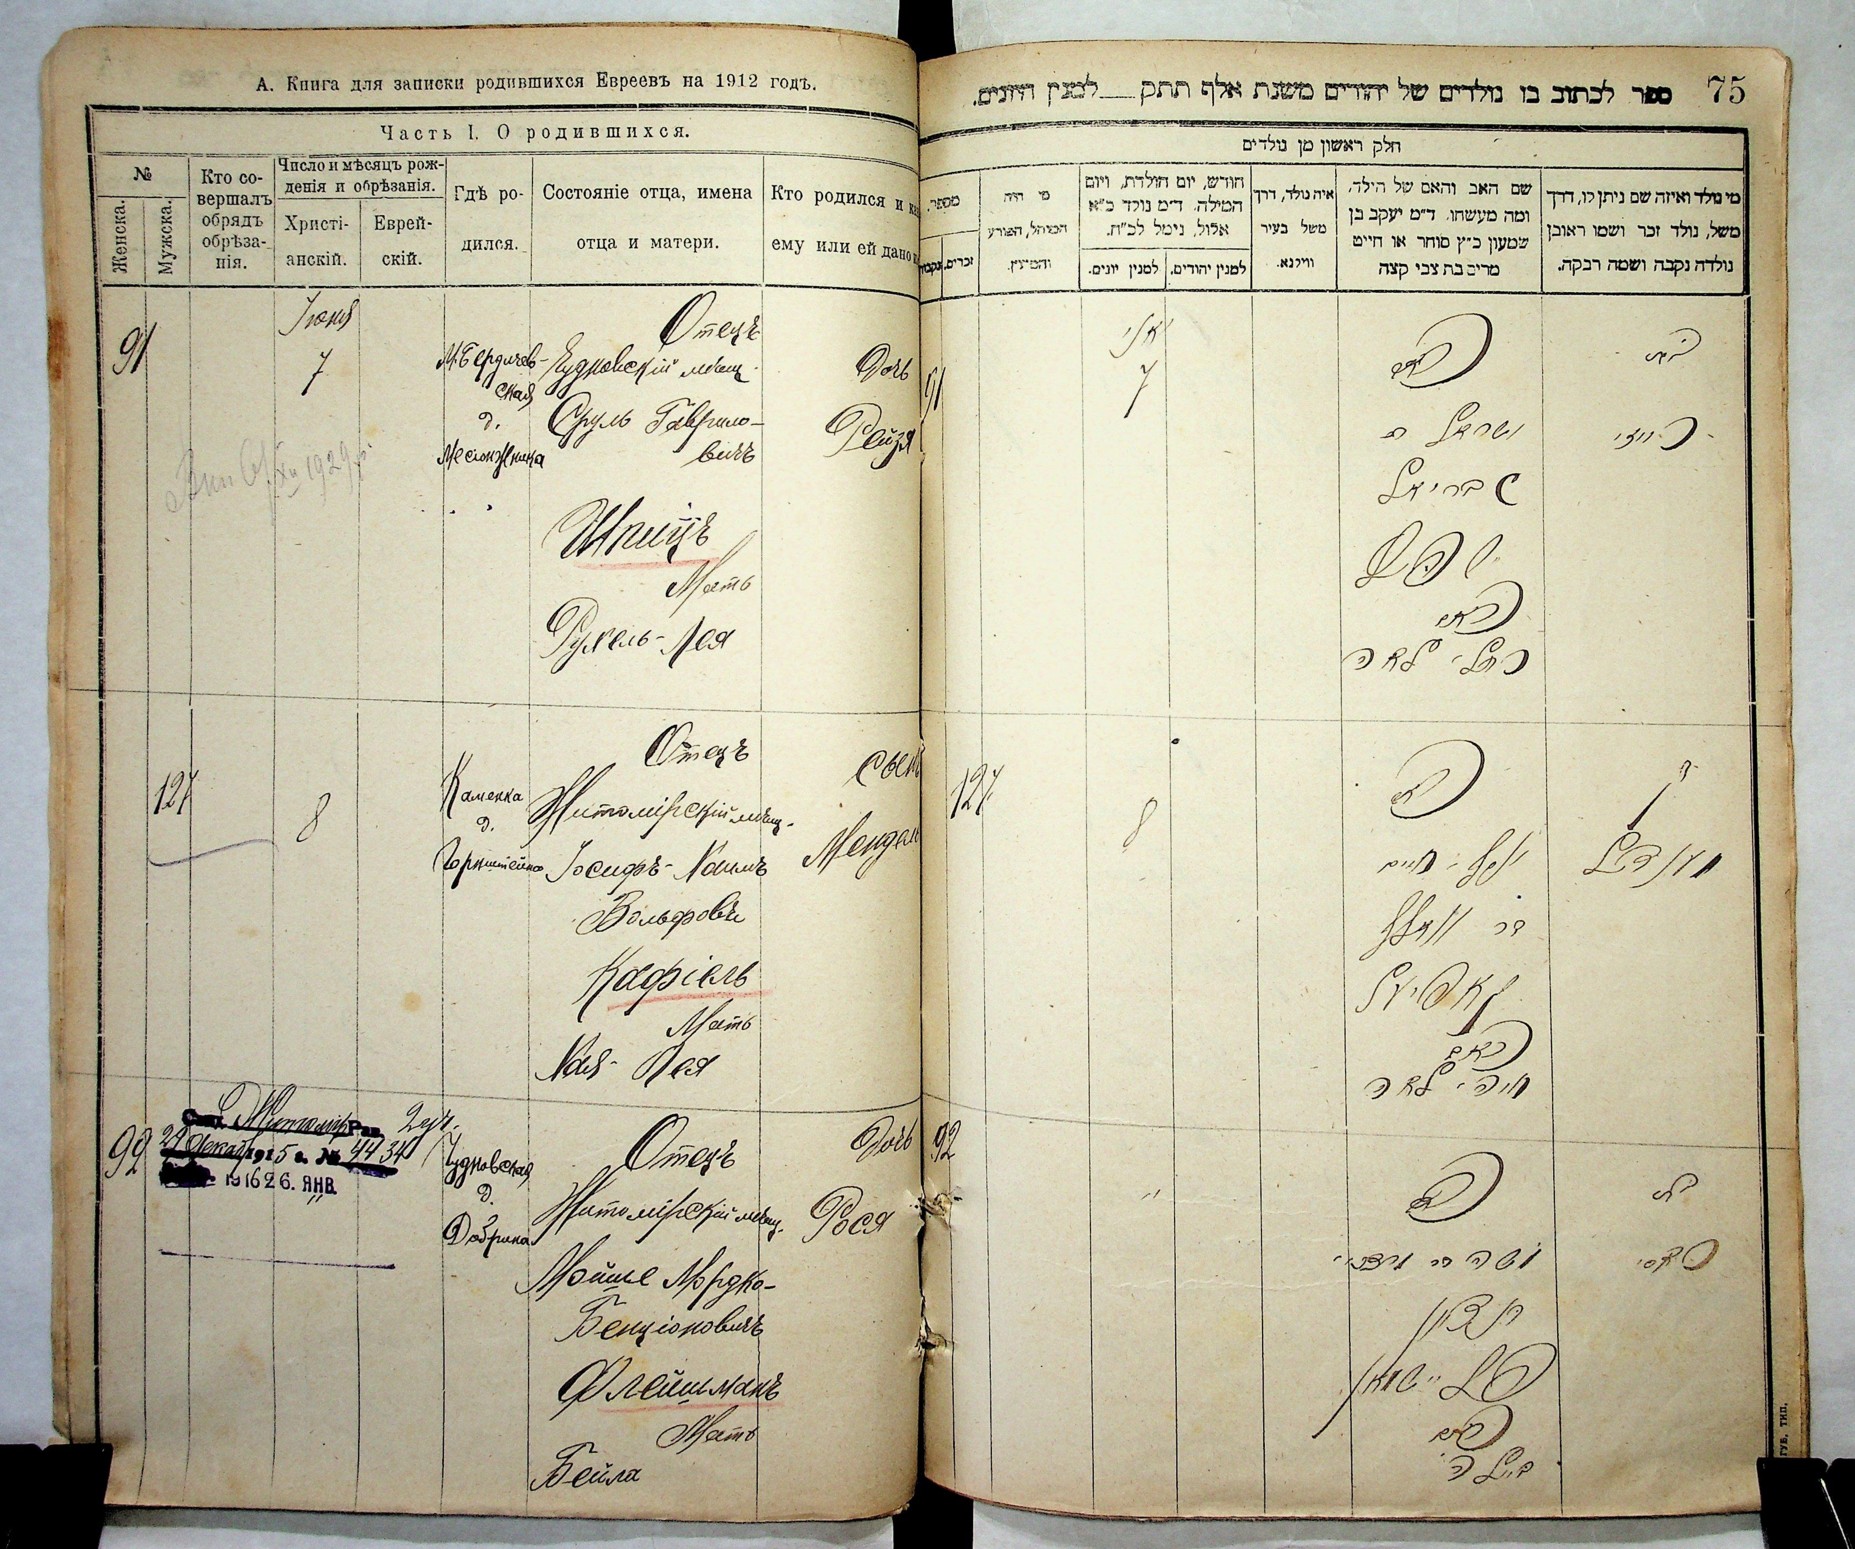 А. Книга для записки родившихся Евреевъ на 1912 годъ.
Часть I. О родившихся.
№
Женска.
Мужска.
Кто со-
вершалъ
обрядъ
обрѣза-
нія.
Число и мѣсяцъ рож-
денія и обрѣзанія.
Христі-
анскій.
Еврей-
скій.
Гдѣ ро-
дился.
Состояніе отца, имена
отца и матери.
Кто родился и
ему или ей дано
91
Іюня
7
М. Бердичев-
ская
д.
Отецъ
Чудновскій мѣщ.
Сруль Гаврило-
вичъ
Шпицъ
Мать
Рухель-Лея
Дочь
Рейзя
127
8
Каменка
д.
Горнштейна
Отецъ
Житомірскій мѣщ.
Іосифъ-Хаимъ
Вольфовъ
Кафіель
Мать
Хая-Лея
Сынъ
Мендель
92
1916 26. ЯНВ.
Чудновская
д.
Добрина
Отецъ
Житомірскій мѣщ.
Мойше Мордко-
Бенціоновичъ
Флейшманъ
Мать
Бейла
Дочь
Рося
ספר לכתוב בו נולדים של יהודים משנת אלף תתק __ למנין היונים.
75
חלק ראשון מן נולדים
מי נולד ואיזה שם ניתן לו, דרך
משל, נולד זכר ושמו ראובן
נולדה נקבה ושמה רבקה.
שם האב והאם של הילד,
ומה מעשהו. ד״מ יעקב בן
שמעון כ״ץ סוחר או חייט
מרים בת צבי קצה
איה נולד, דרך
משל בעיר
ווילנא.
חודש, יום הולדת, ויום
המילה. ד״מ נולד כ״א
אלול, נימל לכ״ח.
למנין יהודים.
למנין יונים.
מי היה
המוהל, הפורע
והמוצץ.
מספר.
זכרים.
נקבות
91
7
ישראל ב
גבריאל
שפיץ
האם
רחל לאה
בת
רייזי
127
8
האב
יוסף חיים
בר וואלף
קאפיעל
האם
חיה לאה
מענדל
92
״
האב
משה בר מרדכי
בן ציון
פליישמאן
האם
ביילה
בת
ראסי
ГУБ. ТИП.